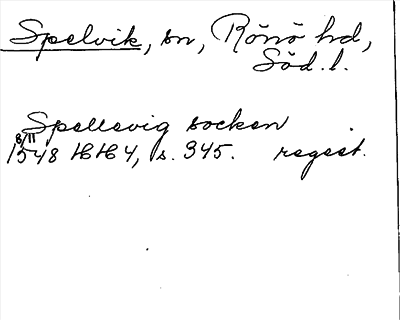 Spelvik, sn, Rönö hd,
Söd. l.
Spellevig socken
8/11
1548 HH 4, s. 345. regest.